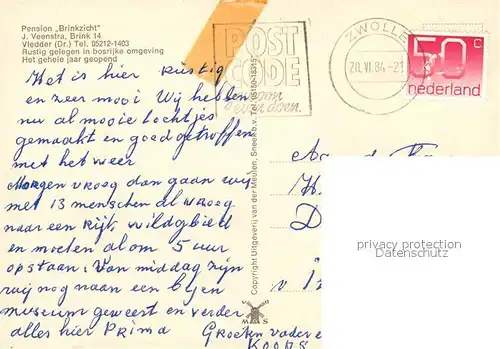 Pension „Brinkzicht"
J. Veenstra, Brink 14
Vledder (Dr.) Tel. 05212-1403
Rustig gelegen in bosrijke omgeving
Het gehele jaar geopend
Het is hier rustig
en zeer mooi Wij hebben
nu al mooie tochtjes
gemaakt en goed getroffen
met het weer
Morgen vroeg dan gaan wij
met 13 menschen al vroeg
naar een Rijk wildgebied
en moeten al om 5 uur
opstaan. Van middag zijn
wij nog naar een bijen
museum geweest en verder
alles hier Prima
Groeten vader e
KOOPS
POST
CODE
ZWOLLE
20.VI.84-21
50 c
nederland
Copyright Uitgeverij van der Meulen, Sneek b.v. Tel.
v M S
privacy protection
Datenschutz